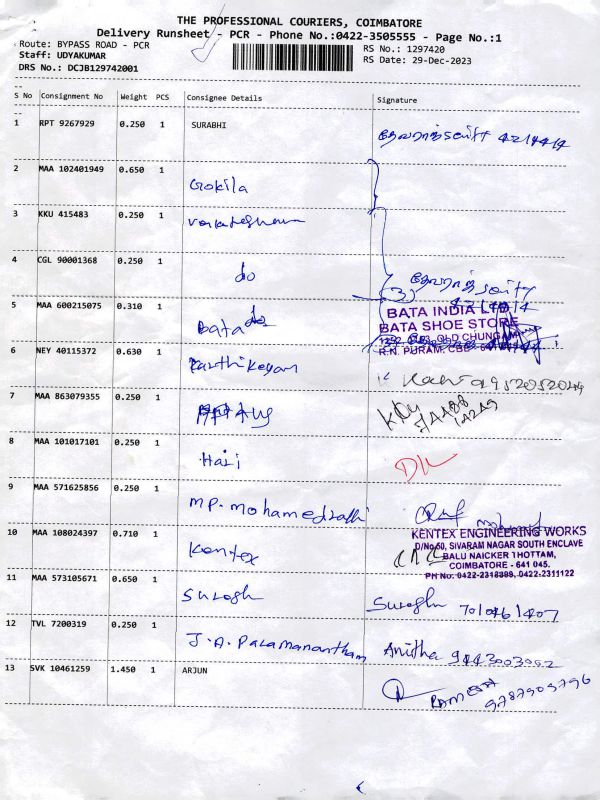 THE PROFESSIONAL COURIERS, COIMBATORE
Delivery Runsheet - PCR - Phone No.:0422-3505555 - Page No.:1
Route: BYPASS ROAD - PCR
RS No.: 1297420
Staff: UDYAKUMAR
RS Date: 29-Dec-2023
DRS No.: DCJB129742001
S No Consignment No Weight PCS Consignee Details Signature
1 RPT 9267929 0.250 1 SURABHI
2 MAA 102401949 0.650 1 Gokila
3 KKU 415483 0.250 1
4 CGL 90001368 0.250 1 do
(3)
5 MAA 600215075 0.310 1 Bata
BATA INDIA L
BATA SHOE STORE
OLD CHUNGAM
R.N. PURAM, CBE
6 NEY 40115372 0.630 1 Karthikeyan
7 MAA 863079355 0.250 1
8 MAA 101017101 0.250 1 Hari
9 MAA 571625856 0.250 1 MP. Mohamedrafhi
10 MAA 108024397 0.710 1 Kentex
KENTEX ENGINEERING WORKS
D/No.60, SIVARAM NAGAR SOUTH ENCLAVE
BALU NAICKER THOTTAM,
COIMBATORE - 641 045.
PH No: 0422-2318398, 0422-2311122
11 MAA 573105671 0.650 1 Suresh Suresh
12 TVL 7200319 0.250 1 J.A. Paramanantham Anitha 9443003002
13 SVK 10461259 1.450 1 ARJUN RAMESH 9787905796